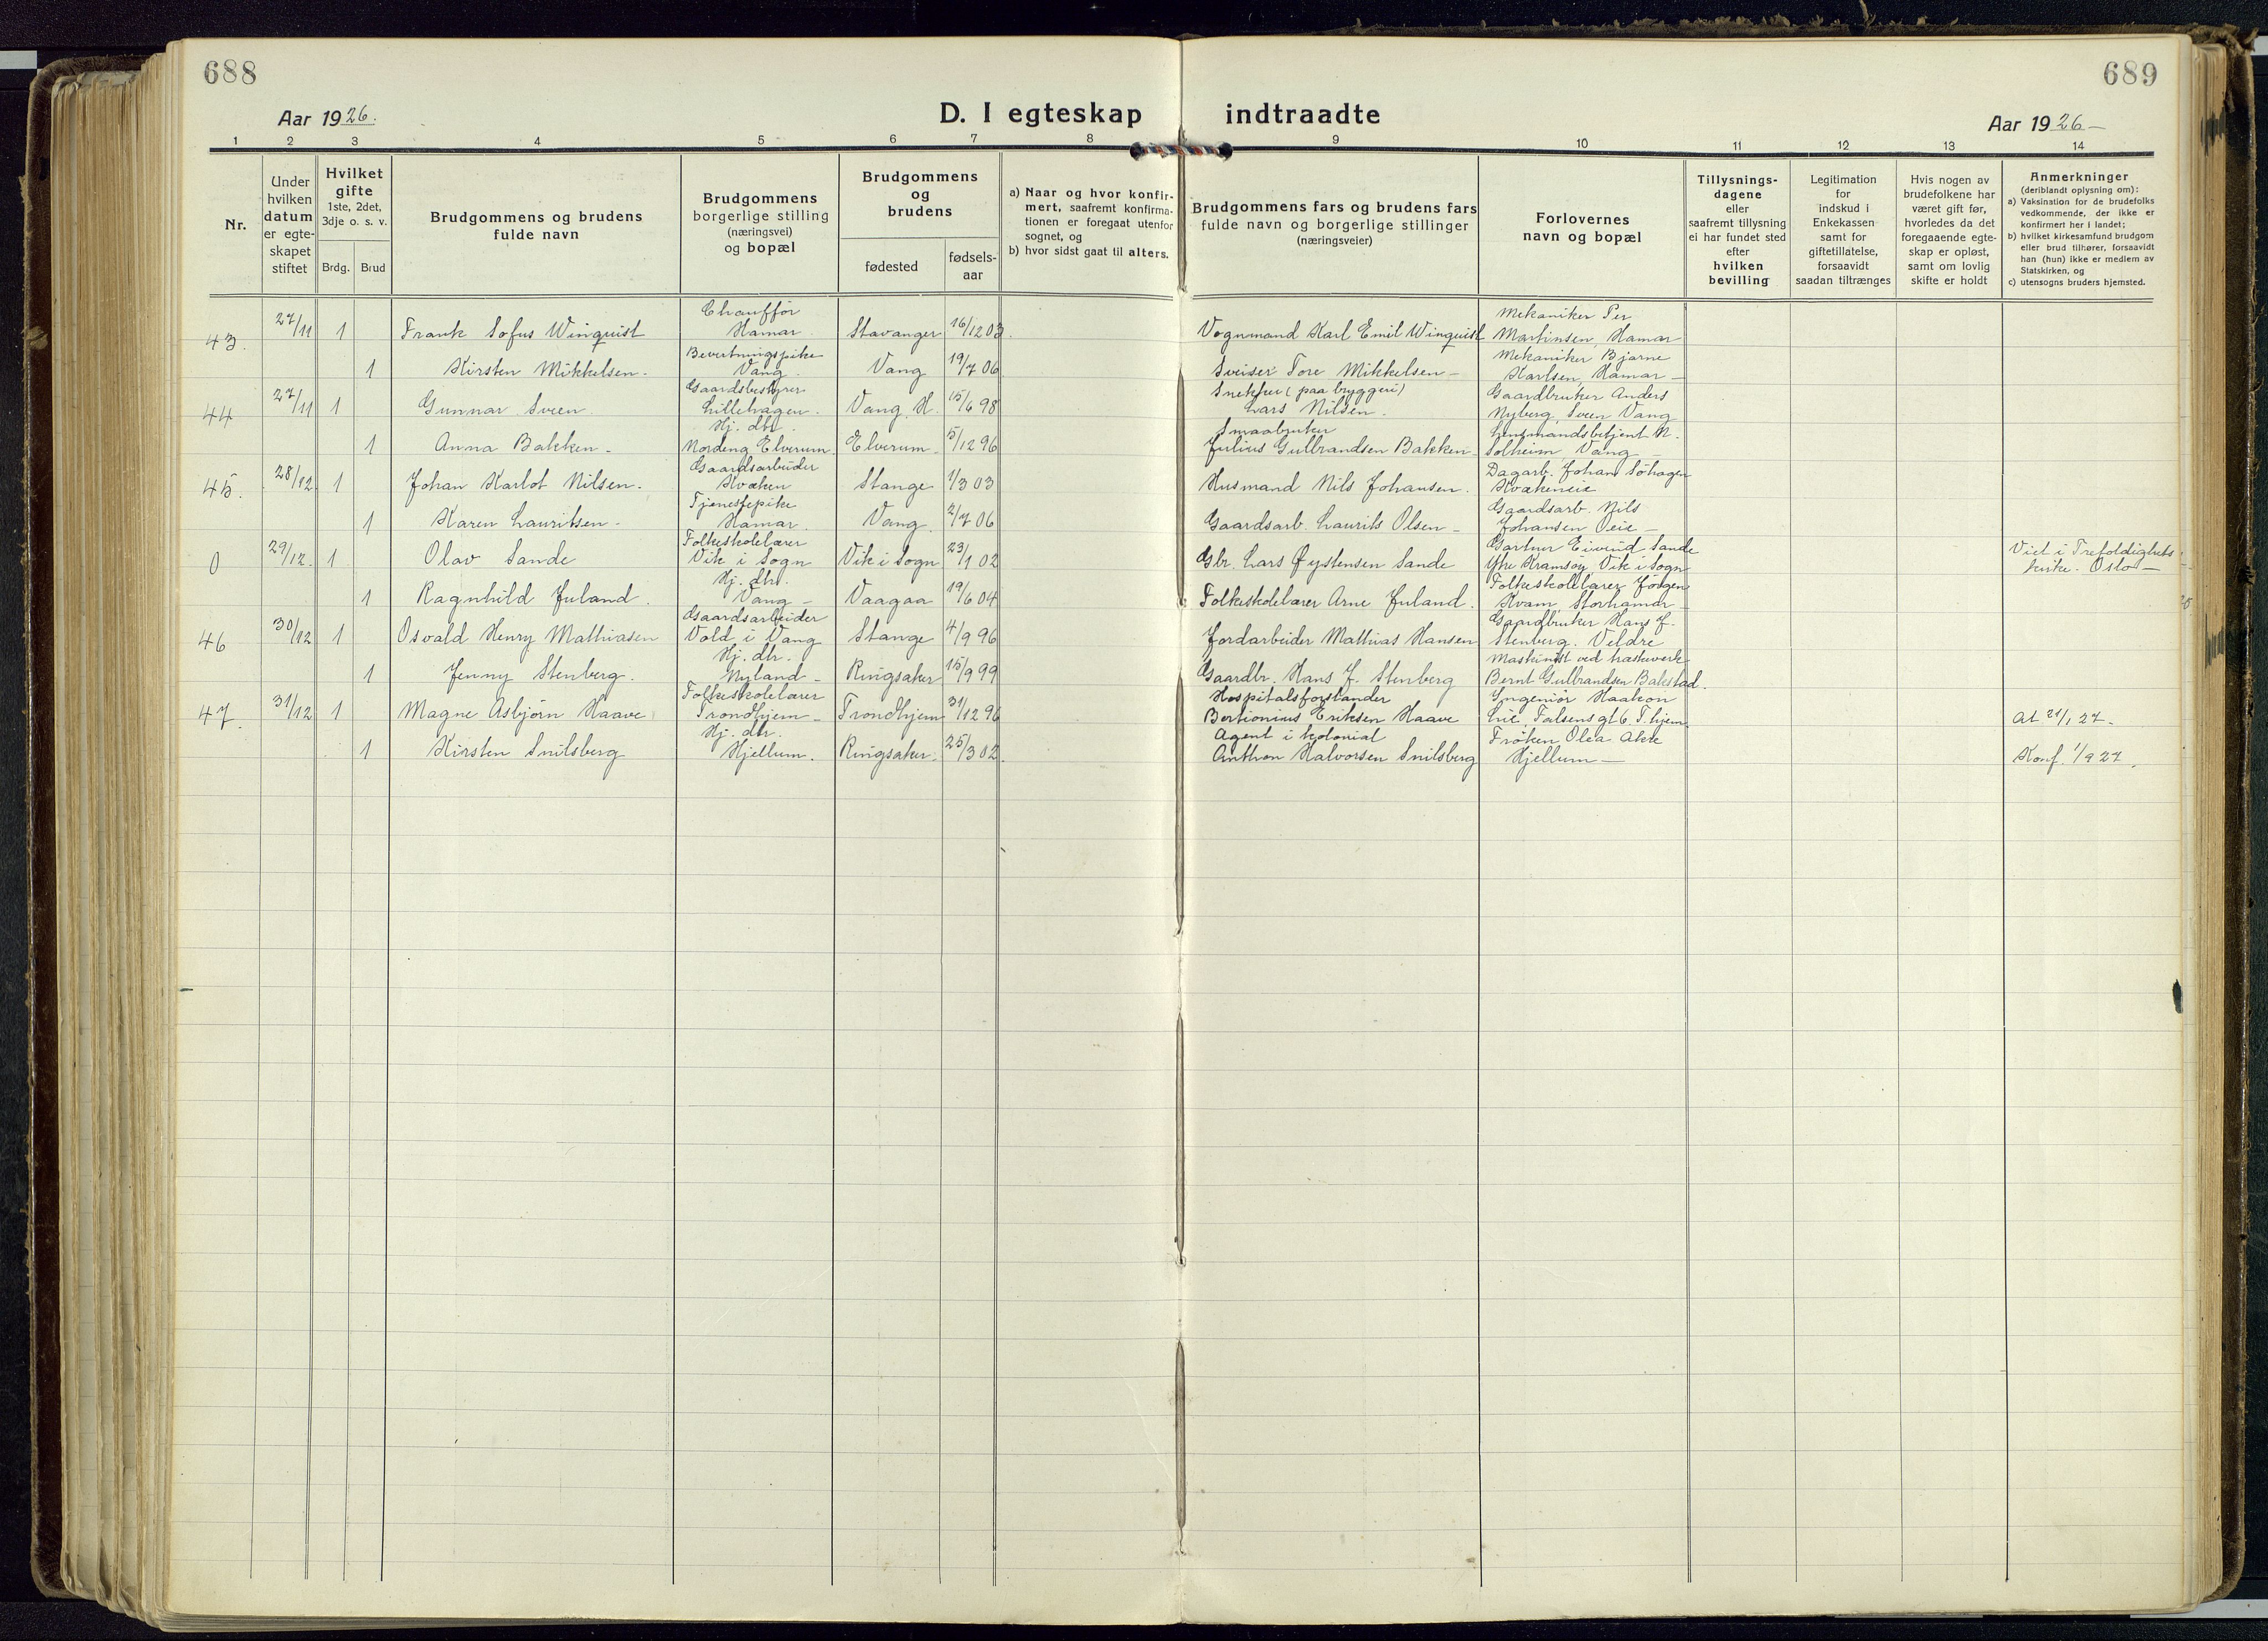 688
689
Aar 1926.
D. I egteskap indtraadte
Aar 1926 —
1 2 3 4 5 6 7 8 9 10 11 12 13 14
Nr.
Under
hvilken
datum
er egte-
skapet
stiftet
Hvilket
gifte
1ste, 2det,
3dje o. s. v.
Brdg. Brud
Brudgommens og brudens
fulde navn
Brudgommens
borgerlige stilling
(næringsvei)
og bopæl
Brudgommens
og
brudens
fødested
fødsels-
aar
a) Naar og hvor konfir-
mert, saafremt konfirma-
tionen er foregaat utenfor
sognet, og
b) hvor sidst gaat til alters.
Brudgommens fars og brudens fars
fulde navn og borgerlige stillinger
(næringsveier)
Forlovernes
navn og bopæl
Tillysnings-
dagene
eller
saafremt tillysning
ei har fundet sted
efter
hvilken
bevilling
Legitimation
for
indskud i
Enkekassen
samt for
giftetillatelse,
forsaavidt
saadan tiltrænges
Hvis nogen av
brudefolkene har
været gift før,
hvorledes da det
foregaaende egte-
skap er opløst,
samt om lovlig
skifte er holdt
Anmerkninger
(deriblandt oplysning om):
a) Vaksination for de brudefolks
vedkommende, der ikke er
konfirmert her i landet;
b) hvilket kirkesamfund brudgom
eller brud tilhører, forsaavidt
han (hun) ikke er medlem av
Statskirken, og
c) utensogns bruders hjemsted.
Chauffør Mekaniker Per
43. 27/11 1 Frank Sofus Winquist Hamar. Stavanger 16/12 03. Vognmand Karl Emil Winquist Martinsen, Hamar
Bevertningspike Mekaniker Bjarne
1 Kirsten Mikkelsen. Vang. Vang 19/7 06 Sveiser Tore Mikkelsen — Karlsen, Hamar —
Gaardsbestyrer Snekker (paa bryggeri) Gaardbruker Anders
44 27/11 1 Gunnar Sveen Lillehagen. Vang, H. 15/6 98 Lars Nilsen. Nyberg, Sveen Vang
Hj. dtr. Smaabruker Lensmandsbetjent N.
1 Anna Bakken. Nordeng Elverum Elverum 5/12 96 Julius Gulbrandsen Bakken Solheim, Vang —
Gaardsarbeider Dagarb. Johan Søhagen
45. 28/12 1 Johan Karlot Nilsen. Kvæken Stange 1/3 03 Husmand Nils Johansen. Kvækeneie
Tjenestepike Gaardsarb. Nils
1 Karen Lauritsen. Hamar. Vang. 2/7 06 Gaardsarb. Laurits Olsen — Johansen Oeie —
Folkeskolelærer Gartner Eivind Sande
0 29/12. 1 Olav Sande Vik i Sogn Vik i Sogn 23/1 02 Gbr. Lars Øystensen Sande Ytre Kramsøy Vik i Sogn Viet i Trefoldighets
Hj. dtr. Folkeskolelærer Jørgen kirke. Oslo —
1 Ragnhild Juland. Vang — Vaagaa 19/6 04 Folkeskolelærer Arne Juland. Kvam, Storhamar —
Gaardsarbeider Gaardbruker Hans J.
46 30/12 1 Osvald Henry Mathiasen Vold i Vang Stange 4/9 96 Jordarbeider Mathias Hansen Stenberg. Veldre
Hj. dtr. Maskinist ved træskeverk
1 Jenny Stenberg. Nyland — Ringsaker 15/9 99 Gaardbr. Hans J. Stenberg Bernt Gulbrandsen Bakstad.
Folkeskolelærer Hospitalsforstander Ingeniør Haakon
47. 31/12 1 Magne Asbjørn Haave Trondhjem — Trondhjem 31/12 96 Eriksen Haave Lie, Falsensgt 6, T.hjem At 21/1 27.
Hj. dtr. Agent i kolonial Frøken Olea Aker
1 Kirsten Snilsberg Hjellum. Ringsaker. 25/3 02. Anthon Halvorsen Snilsberg Hjellum — Konf. 1/9 27.